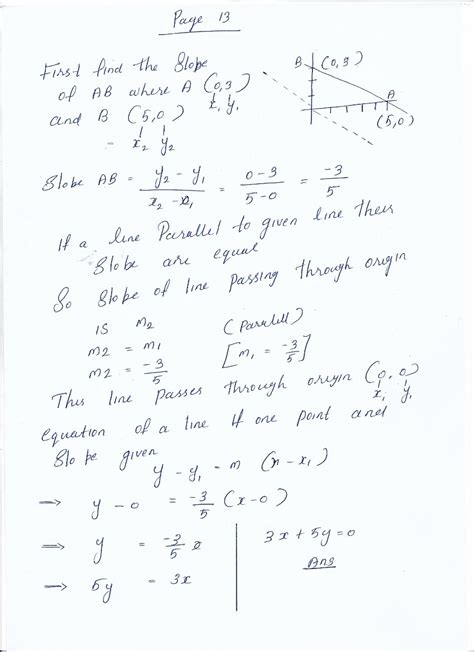 Page 13
First find the Slope
of AB where A (0,3)
x₁ y₁
and B (5,0)
= x₂ y₂
B (0,3)
A
(5,0)
Slope AB = y₂ - y₁ / x₂ - x₁ = 0-3 / 5-0 = -3/5
If a line Parallel to given line their
Slope are equal
So Slope of line passing through origin
is m₂ (Parallel)
m2 = m₁ [m₁ = -3/5]
m2 = -3/5
This line passes through origin (0,0)
x₁ y₁
equation of a line if one point and
Slope given
y - y₁ = m (x - x₁)
⇒ y - 0 = -3/5 (x-0)
⇒ y = -3/5 x
⇒ 5y = 3x
3x + 5y = 0
Ans